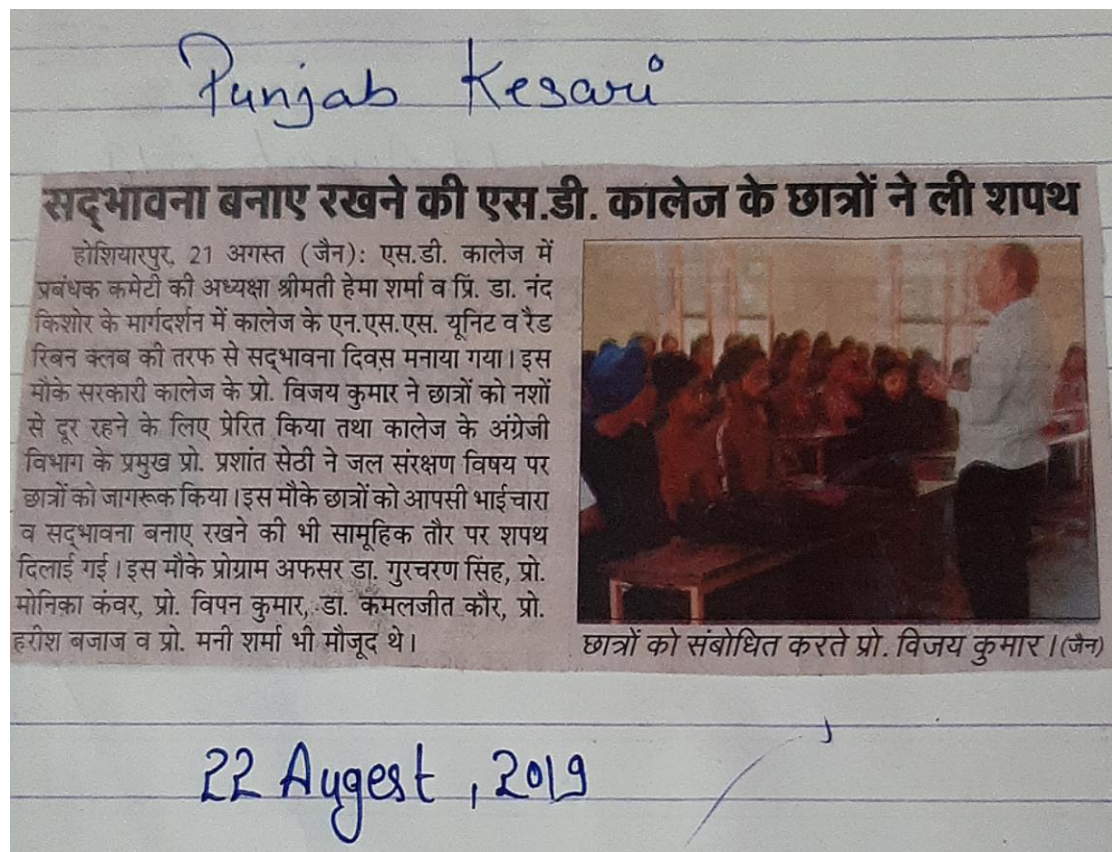 Punjab Kesari
सद्भावना बनाए रखने की एस.डी. कालेज के छात्रों ने ली शपथ
होशियारपुर, 21 अगस्त (जैन): एस.डी. कालेज में
प्रबंधक कमेटी की अध्यक्षा श्रीमती हेमा शर्मा व प्रिं. डा. नंद
किशोर के मार्गदर्शन में कालेज के एन.एस.एस. यूनिट व रैड
रिबन क्लब की तरफ से सद्भावना दिवस मनाया गया। इस
मौके सरकारी कालेज के प्रो. विजय कुमार ने छात्रों को नशों
से दूर रहने के लिए प्रेरित किया तथा कालेज के अंग्रेजी
विभाग के प्रमुख प्रो. प्रशांत सेठी ने जल संरक्षण विषय पर
छात्रों को जागरूक किया। इस मौके छात्रों को आपसी भाईचारा
व सद्भावना बनाए रखने की भी सामूहिक तौर पर शपथ
दिलाई गई। इस मौके प्रोग्राम अफसर डा. गुरचरण सिंह, प्रो.
मोनिका कंवर, प्रो. विपन कुमार, डा. कमलजीत कौर, प्रो.
हरीश बजाज व प्रो. मनी शर्मा भी मौजूद थे।
छात्रों को संबोधित करते प्रो. विजय कुमार। (जैन)
22 Augest, 2019